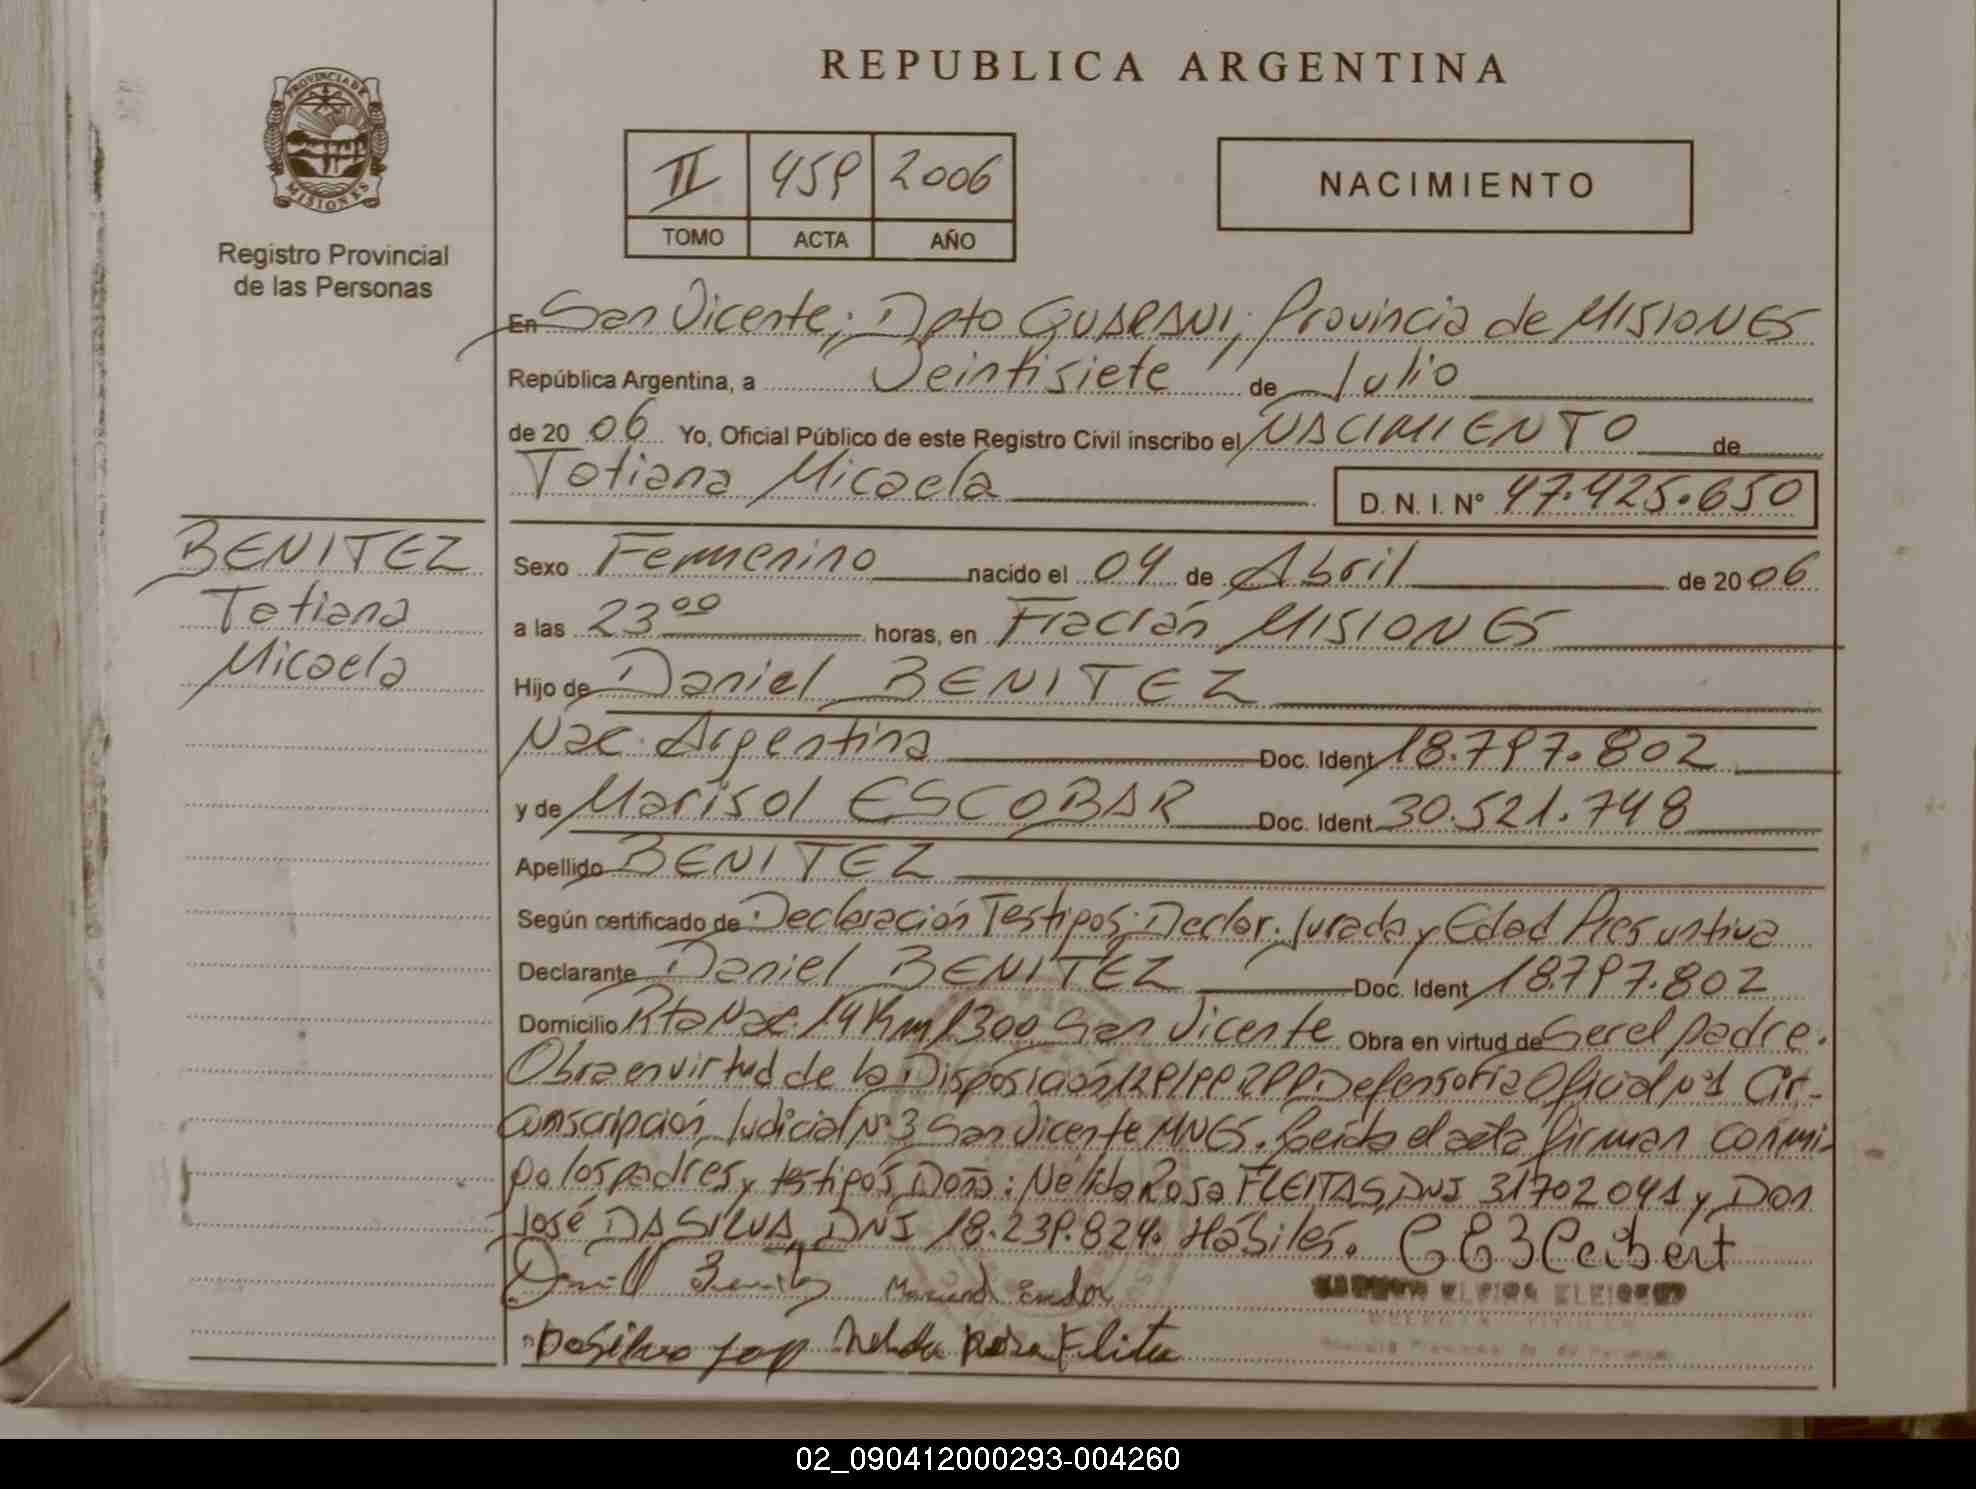 REPUBLICA ARGENTINA
PROVINCIA DE
MISIONES
Registro Provincial
de las Personas
II 459 2006
TOMO ACTA AÑO
NACIMIENTO
En San Vicente; Dpto GUARANI; Provincia de MISIONES
República Argentina, a Veintisiete de Julio
de 20 06 Yo, Oficial Público de este Registro Civil inscribo el NACIMIENTO de
Tatiana Micaela
D. N. I. Nº 47.425.650
BENITEZ
Tatiana
Micaela
Sexo Femenino nacido el 04 de Abril de 20 06
a las 23 00 horas, en Fracrán MISIONES
Hijo de Daniel BENITEZ
Nac. Argentina Doc. Ident 18.797.802
y de Marisol ESCOBAR Doc. Ident 30.521.748
Apellido BENITEZ
Según certificado de Declaración Testigos; Declar. Jurada y Edad Presuntiva
Declarante Daniel BENITEZ Doc. Ident 18.797.802
Domicilio Rta Nac. 14 Km 1300 San Vicente Obra en virtud de Ser el padre.
Obra en virtud de la Disposición Defensoría Oficial Nº1 Cir-
cunscripción Judicial Nº3 San Vicente MNES. Leída el acta firman conmi-
go los padres y testigos Doña: Nélida Rosa FLEITAS, DNI 31702041 y Don
José DA SILVA DNI 18.239.824. Hábiles.
Daniel Benitez
Dasilva Jose Nelida Rosa
02_090412000293-004260